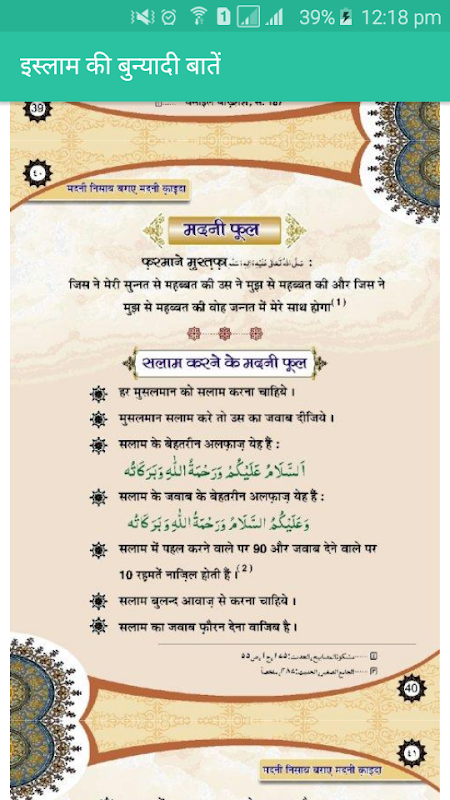 39% 12:18 pm
इस्लाम की बुन्यादी बातें
39
٤٠
मदनी निसाब बराए मदनी क़ाइदा
मदनी फूल
फ़रमाने मुस्त़फ़ा صَلَّى اللهُ تَعَالٰى عَلَيْهِ وَاٰلِهٖ وَسَلَّم :
जिस ने मेरी सुन्नत से महब्बत की उस ने मुझ से महब्बत की और जिस ने
मुझ से महब्बत की वोह जन्नत में मेरे साथ होगा(1)
सलाम करने के मदनी फूल
हर मुसलमान को सलाम करना चाहिये ।
मुसलमान सलाम करे तो उस का जवाब दीजिये ।
सलाम के बेहतरीन अलफ़ाज़ येह हैं :
اَلسَّلَامُ عَلَيْكُمْ وَرَحْمَةُ اللّٰهِ وَبَرَكَاتُه
सलाम के जवाब के बेहतरीन अलफ़ाज़ येह हैं :
وَعَلَيْكُمُ السَّلَامُ وَرَحْمَةُ اللّٰهِ وَبَرَكَاتُه
सलाम में पहल करने वाले पर 90 और जवाब देने वाले पर
10 रह़मतें नाज़िल होती हैं ।(2)
सलाम बुलन्द आवाज़ से करना चाहिये ।
सलाम का जवाब फ़ौरन देना वाजिब है ।
40
٤١
मदनी निसाब बराए मदनी क़ाइदा